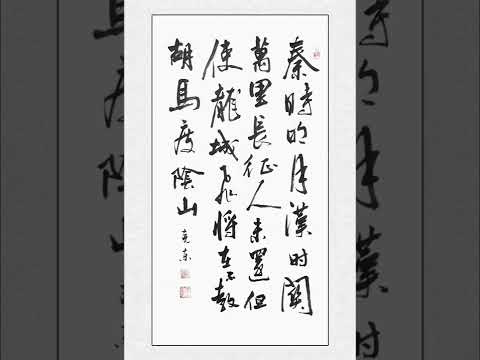 秦時明月漢时關
萬里長征人未還但
使龍城飛將在不教
胡馬度陰山